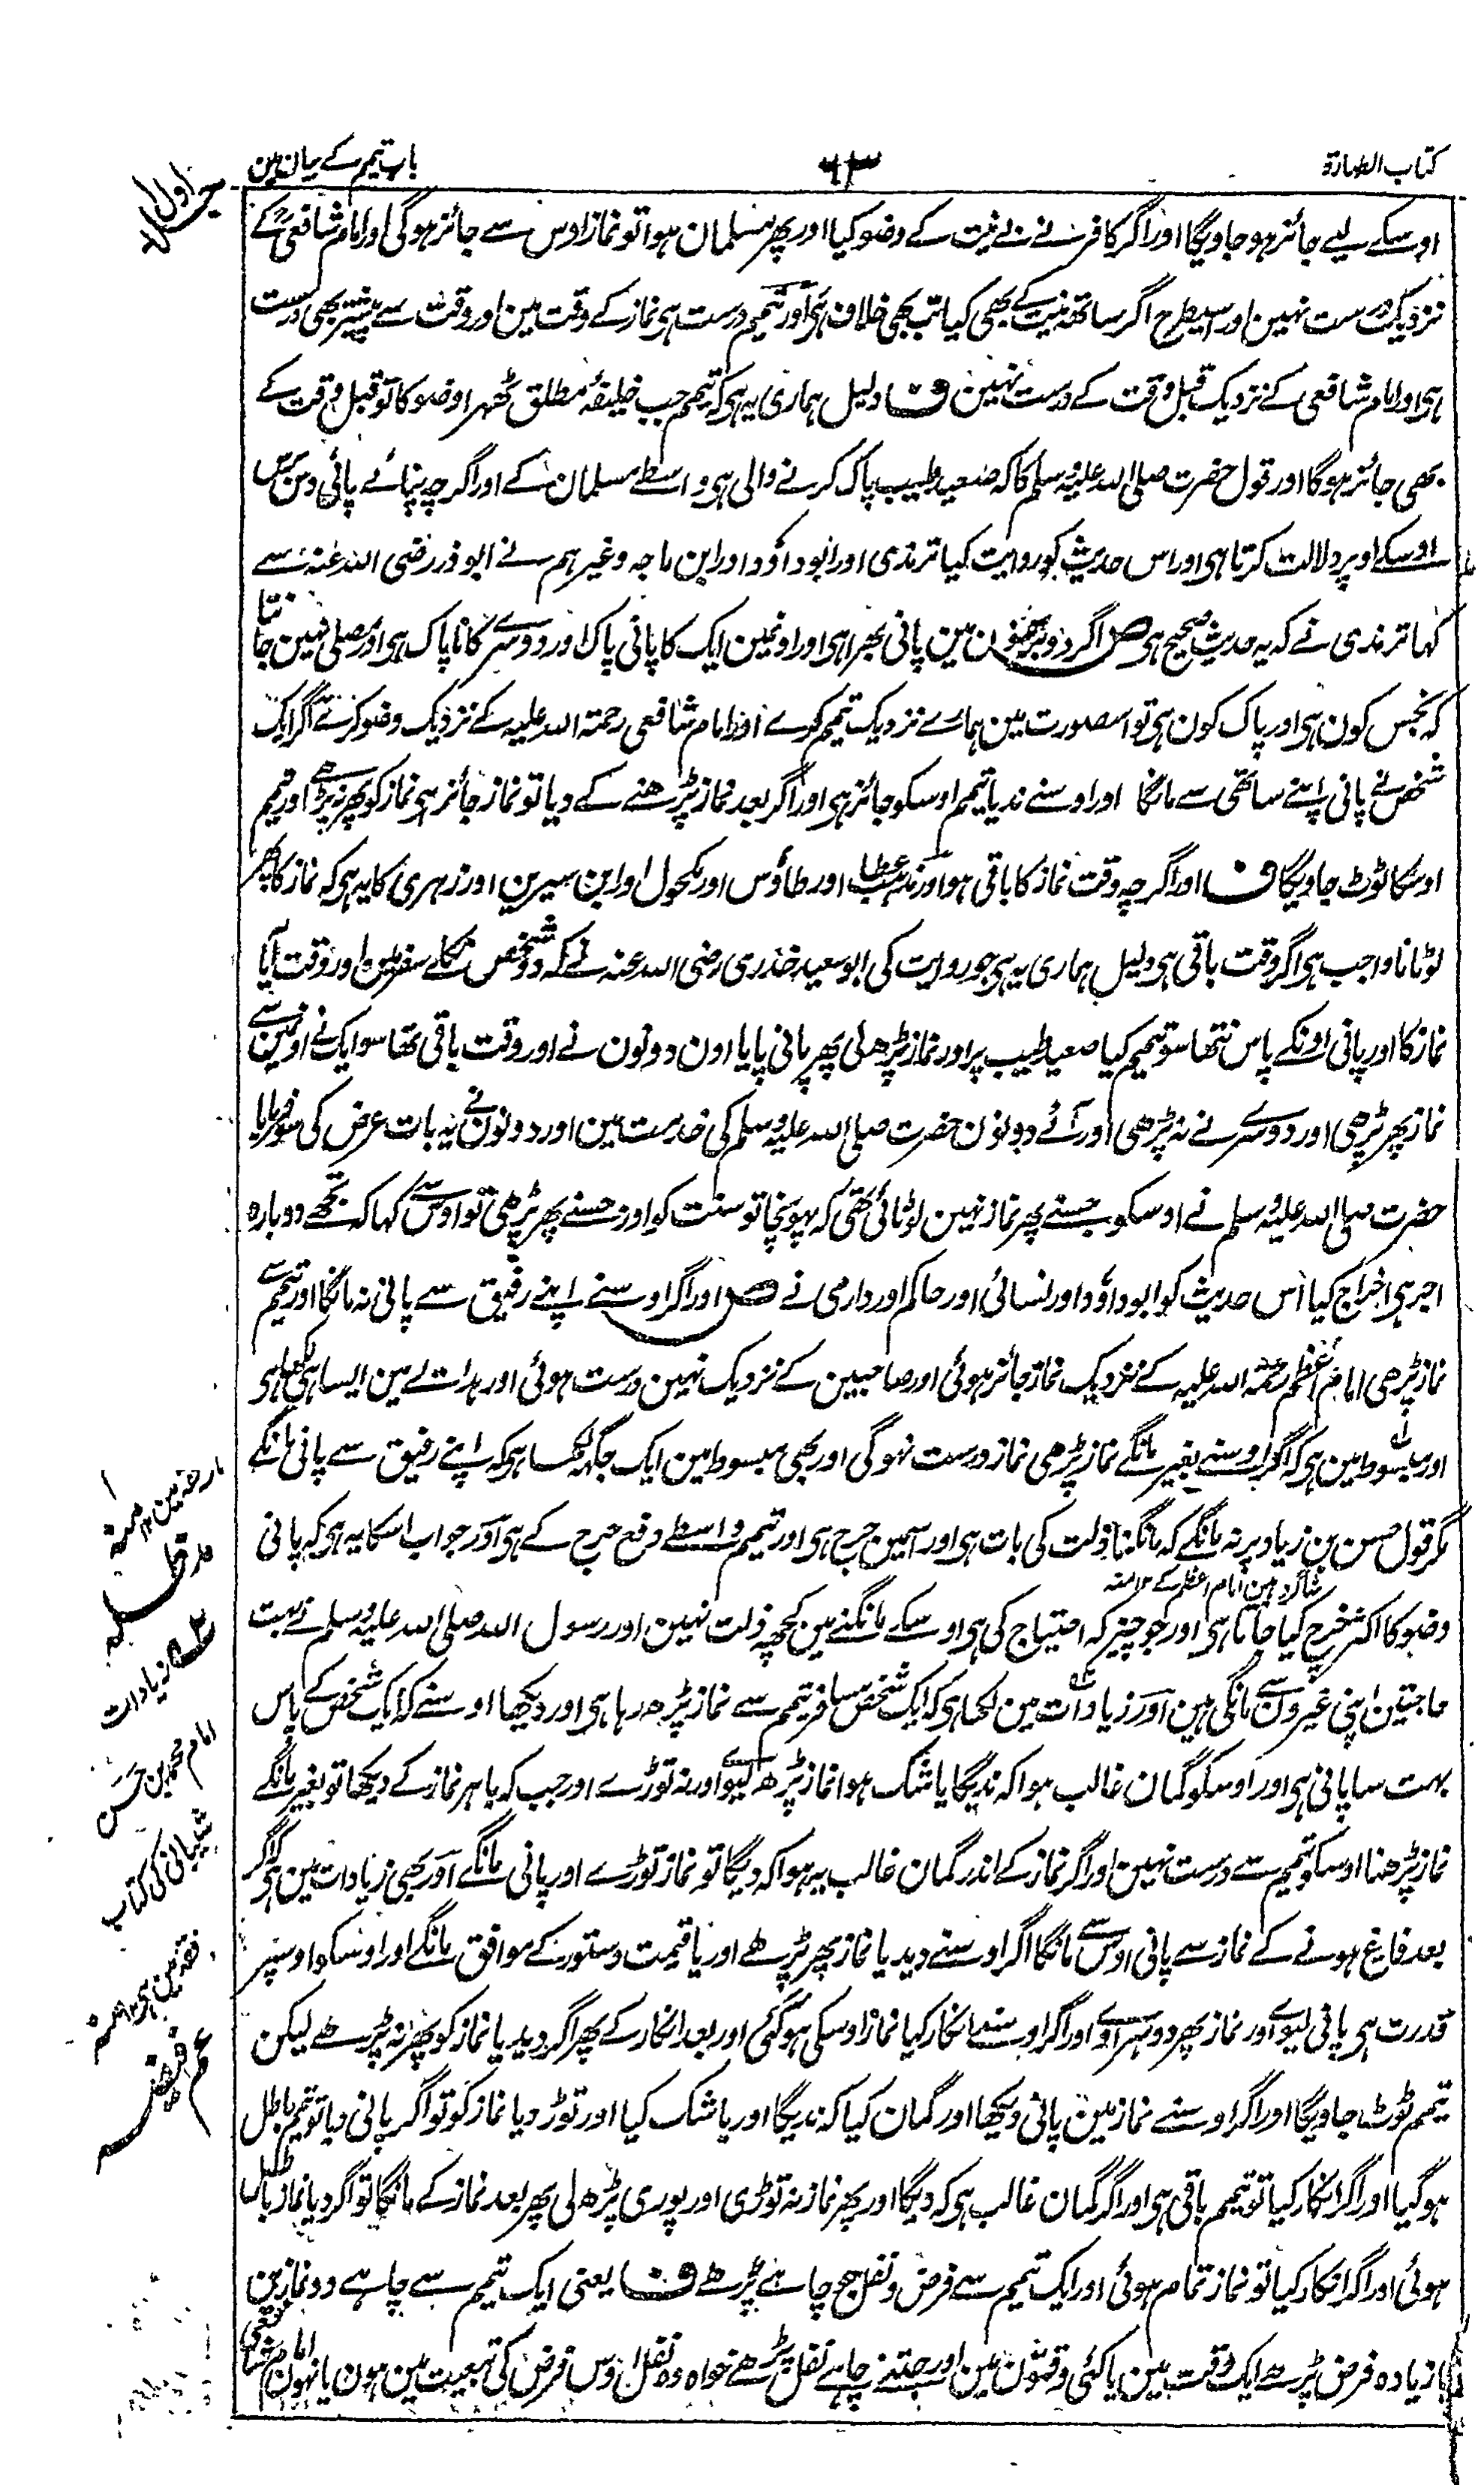 کتاب الطہارۃ
۶۳
باب تیمم کے بیان مین
جلد اول
اوسکے لیے جائز ہو جاویگا اور اگر کافر نے بے نیت کے وضو کیا اور پھر مسلمان ہوا تو نماز اوس سے جائز ہو گی اور امام شافعیؒ کے
نزدیک درست نہین اور اسیطرح اگر ساتھ نیت کے بھی کیا تب بھی خلاف ہی اور تیمم درست ہی نماز کے وقت مین اور وقت سے پیشتر بھی درست
ہی اور امام شافعی کے نزدیک قبل وقت کے درست نہین ف دلیل ہماری یہ ہی کہ تیمم جب خلیفۂ مطلق ٹھہرا وضو کا تو قبل وقت کے
بھی جائز ہوگا اور قول حضرت صلی اللہ علیہ وسلم کا کہ صعید طیب پاک کرنے والی ہی واسطے مسلمان کے اور اگرچہ نپائے پانی دس برس
اوسکے اوپر دلالت کرتا ہی اور اس حدیث کو روایت کیا ترمذی اور ابو داؤد اور ابن ماجہ وغیرہم نے ابوذر رضی اللہ عنہ سے
کہا ترمذی نے کہ یہ حدیث صحیح ہی ص اگر دو برتنون مین پانی بھرا ہی اور اونمین ایک کا پانی پاک اور دوسرے کا ناپاک ہی اور مصلی نہین جانتا
کہ نجس کون ہی اور پاک کون ہی تو اسصورت مین ہمارے نزدیک تیمم کرے اور امام شافعی رحمۃ اللہ علیہ کے نزدیک وضو کرے اگر ایک
شخص نے پانی اپنے ساتھی سے مانگا اور اوسنے ندیا تیمم اوسکو جائز ہی اور اگر بعد نماز پڑھنے کے دیا تو نماز جائز ہی نماز کو پھر نہ پڑھے اور تیمم
اوسکا ٹوٹ جاویگا ف اور اگرچہ وقت نماز کا باقی ہو اور مذہب عطا اور طاؤس اور مکحول اور ابن سیرین اور زہری کا یہ ہی کہ نماز کا پھر
لوٹانا واجب ہی اگر وقت باقی ہی دلیل ہماری یہ ہی جو روایت کی ابو سعید خدری رضی اللہ عنہ نے کہ دو شخص نکلے سفر مین اور وقت آیا
نماز کا اور پانی اونکے پاس نتھا سو تیمم کیا صعید طیب پر اور نماز پڑھ لی پھر پانی پایا اون دونون نے اور وقت باقی تھا سو ایک نے اونمین سے
نماز پھر پڑھی اور دوسرے نے نہ پڑھی اور آئے دونون حضرت صلی اللہ علیہ وسلم کی خدمت مین اور دونون نے یہ بات عرض کی سو فرمایا
حضرت صلی اللہ علیہ وسلم نے اوسکو جسنے پھر نماز نہین لوٹائی تھی کہ پہونچا تو سنت کو اور جسنے پھر پڑھی تو اوس سے کہا کہ تجھے دوبارہ
اجر ہی اخراج کیا اس حدیث کو ابو داؤد اور نسائی اور حاکم اور دارمی نے ص اور اگر اوسنے اپنے رفیق سے پانی نہ مانگا اور تیمم سے
نماز پڑھی امام اعظم رحمۃ اللہ علیہ کے نزدیک نماز جائز ہوئی اور صاحبین کے نزدیک نہین درست ہوئی اور ہدایے مین ایسا ہی لکھا ہی
اور مبسوط مین ہی کہ اگر اوسنے بغیر مانگے نماز پڑھی نماز درست نہوگی اور بھی مبسوط مین ایک جگہ لکھا ہی کہ اپنے رفیق سے پانی مانگے
مگر قول حسن بن زیاد پر نہ مانگے کہ مانگنا ذلت کی بات ہی اور اسمین حرج ہی اور تیمم واسطے دفع حرج کے ہی اور جواب اسکا یہ ہی کہ پانی
شاگرد ہین امام اعظم کے ۱۲ منہ
وضو کا اکثر خرچ کیا جاتا ہی اور جو چیز کہ احتیاج کی ہی اوسکے مانگنے مین کچھہ ذلت نہین اور رسول اللہ صلی اللہ علیہ وسلم نے بہت
حاجتین اپنی غیرون سے مانگی ہین اور زیادات مین لکھا ہی کہ ایک شخص مسافر تیمم سے نماز پڑھ رہا ہی اور دیکھا اوسنے کہ ایک شخص کے پاس
بہت سا پانی ہی اور اوسکو گمان غالب ہوا کہ ندیگا یا شک ہوا نماز پڑھ لیوے اور نہ توڑے اور جب کہ باہر نماز کے دیکھا تو بغیر مانگے
نماز پڑھنا اوسکو تیمم سے درست نہین اور اگر نماز کے اندر گمان غالب یہ ہوا کہ دیگا تو نماز توڑے اور پانی مانگے اور بھی زیادات مین ہی کہ اگر
بعد فارغ ہونے کے نماز سے پانی اوس سے مانگا اگر اوسنے دیدیا نماز پھر پڑھے اور یا قیمت دستور کے موافق مانگے اور اوسکو اوسپر
قدرت ہی پانی لیوے اور نماز پھر دوہراوے اور اگر اوسنے انکار کیا نماز اوسکی ہو گئی اور بعد انکار کے پھر اگر دیدیا نماز کو پھر نہ پڑھے لیکن
تیمم ٹوٹ جاویگا اور اگر اوسنے نماز مین پانی دیکھا اور گمان کیا کہ ندیگا اور یا شک کیا اور توڑ دیا نماز کو تو اگر پانی دیا تو تیمم باطل
ہو گیا اور اگر انکار کیا تو تیمم باقی ہی اور اگر گمان غالب ہی کہ دیگا اور پھر نماز نہ توڑی اور پوری پڑھ لی پھر بعد نماز کے مانگا تو اگر دیا نماز باطل
ہوئی اور اگر انکار کیا تو نماز تمام ہوئی اور ایک تیمم سے فرض و نفل جو چاہے پڑھے ف یعنی ایک تیمم سے چاہے دو نمازین
یا زیادہ فرض پڑھے ایک وقت مین یا کئی وقتون مین اور جتنے چاہے نفل پڑھے خواہ وہ نفل اوس فرض کی تبعیت مین ہون یا نہون امام شافعی
زیادات
امام محمد بن حسن
شیبانی کی کتاب
فقہ مین ہی ۱۲ منہ